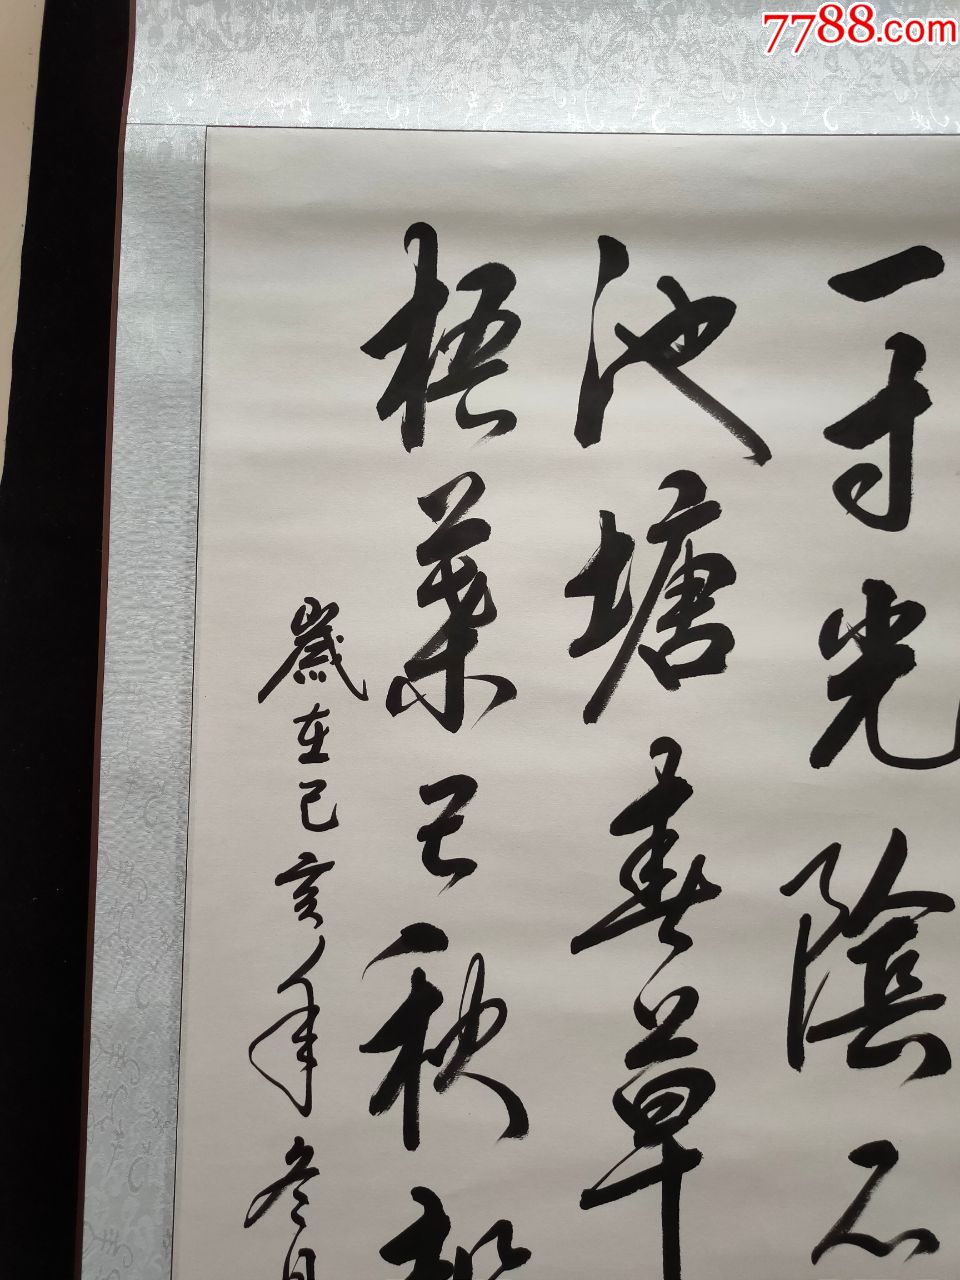 7788.com
一寸光陰不
池塘春草
梧葉已秋
歲在己亥年冬月